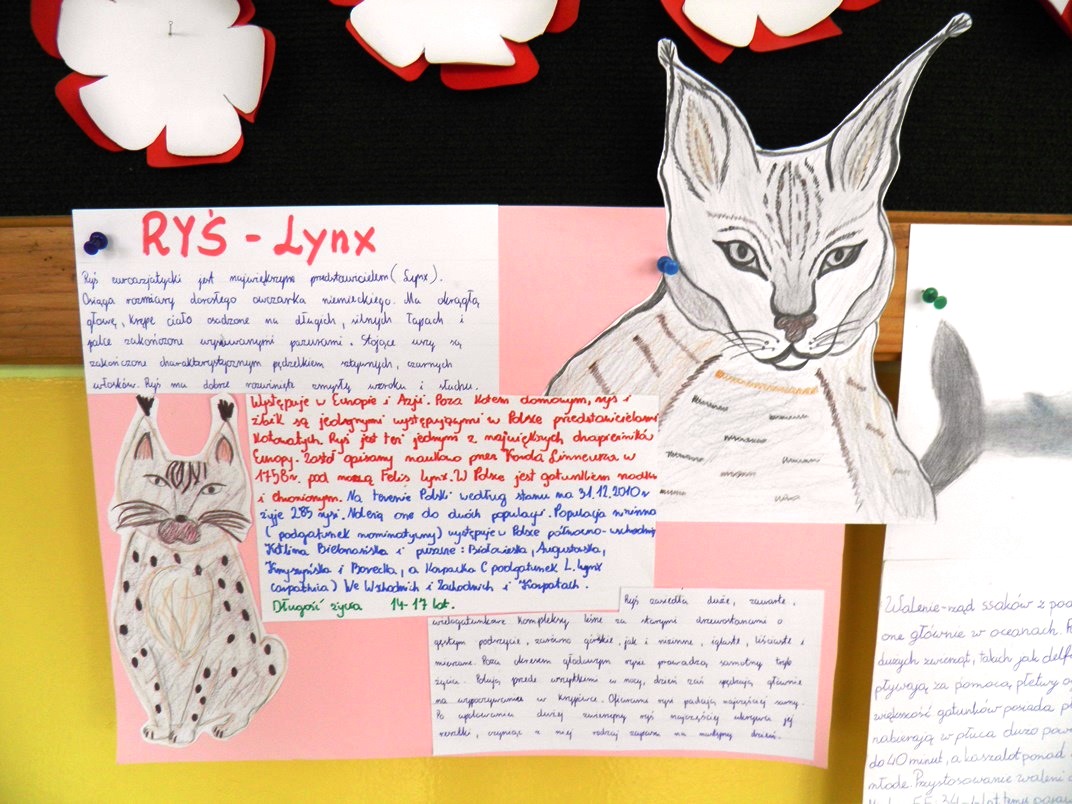 RYŚ - Lynx
Ryś euroazjatycki jest największym przedstawicielem (Lynx).
Osiąga rozmiary dorosłego owczarka niemieckiego. Ma okrągłą
głowę, krępe ciało osadzone na długich, silnych łapach i
palce zakończone wysuwanymi pazurami. Stojące uszy są
zakończone charakterystycznym pędzelkiem sztywnych, czarnych
włosków. Ryś ma dobrze rozwinięte zmysły wzroku i słuchu.
Występuje w Europie i Azji. Poza kotem domowym, ryś i
żbik są jedynymi występującymi w Polsce przedstawicielami
kotowatych. Ryś jest też jednym z największych drapieżników
Europy. Został opisany naukowo przez Karola Linneusza w
1758r. pod nazwą Felis lynx. W Polsce jest gatunkiem rzadkim
i chronionym. Na terenie Polski według stanu na 31.12.2010r
żyje 285 rysi. Należą one do dwóch populacji. Populacja nizinna
(podgatunek nominatywny) występuje w Polsce północno-wschodniej
Kotlina Biebrzańska i puszcze: Białowieska, Augustowska,
Knyszyńska i Borecka, a Karpacka (podgatunek L. lynx
carpathica) We Wschodnich i Zachodnich i Karpatach.
Długość życia 14-17 lat.
Ryś zasiedla duże, zwarte,
wielogatunkowe kompleksy leśne ze starymi drzewostanami o
gęstym podszycie, zarówno górskie, jak i nizinne, iglaste, liściaste i
mieszane. Poza okresem godowym rysie prowadzą samotny tryb
życia. Polują przede wszystkim w nocy, dzień zaś spędzają głównie
na wypoczywaniu w kryjówce. Ofiarami rysi padają najczęściej sarny.
Po upolowaniu dużej zwierzyny ryś najczęściej ukrywa jej
resztki, czyniąc z niej rodzaj zapasu na następny dzień.
Walenie-rząd ssaków z
one głównie w oceanach.
dużych zwierząt, takich jak
pływają za pomocą płetwy
większość gatunków posiada
nabierają w płuca dużo
do 40 minut, a kaszalot ponad
młode. Przystosowanie waleni